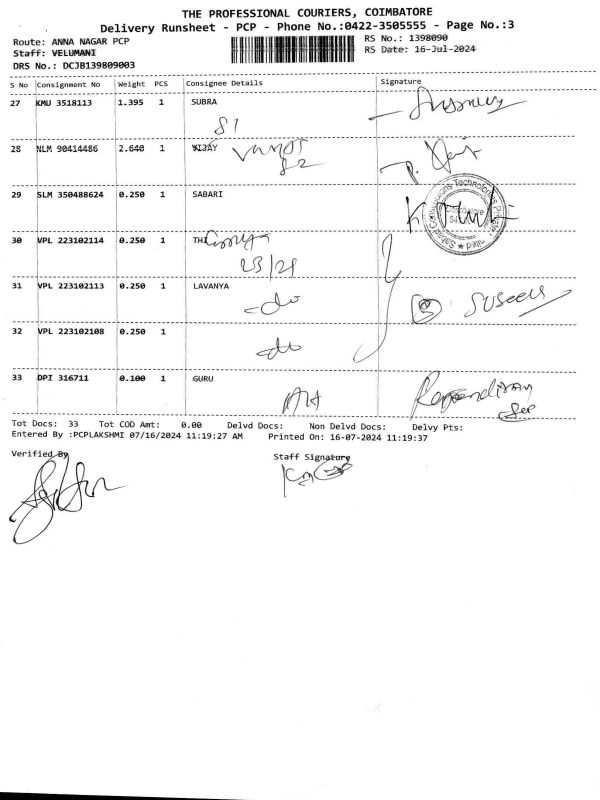 THE PROFESSIONAL COURIERS, COIMBATORE
Delivery Runsheet - PCP - Phone No.:0422-3505555 - Page No.:3
Route: ANNA NAGAR PCP RS No.: 1398090
Staff: VELUMANI RS Date: 16-Jul-2024
DRS No.: DCJB139809003
S No Consignment No Weight PCS Consignee Details Signature
27 KMU 3518113 1.395 1 SUBRA
81
28 NLM 90414486 2.640 1 VIJAY
82
29 SLM 350488624 0.250 1 SABARI
30 VPL 223102114 0.250 1 THI
23/24
31 VPL 223102113 0.250 1 LAVANYA
-do
32 VPL 223102108 0.250 1
-do
33 DPI 316711 0.100 1 GURU
Tot Docs: 33 Tot COD Amt: 0.00 Delvd Docs: Non Delvd Docs: Delvy Pts:
Entered By :PCPLAKSHMI 07/16/2024 11:19:27 AM Printed On: 16-07-2024 11:19:37
Verified By Staff Signature